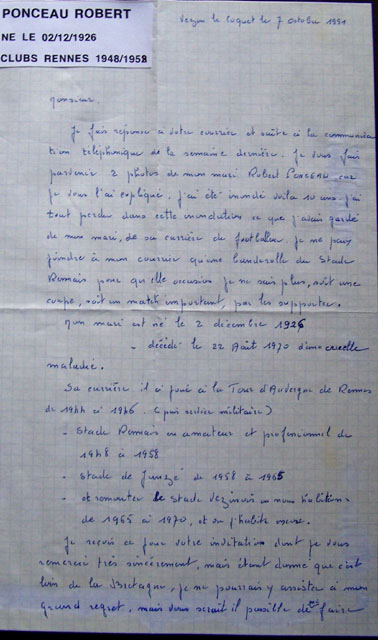 PONCEAU ROBERT
NE LE 02/12/1926
CLUBS RENNES 1948/1958
Vezin le Coquet le 7 octobre 1991
Monsieur
Je fais réponse à votre courrier et suite à la communica
tion téléphonique de la semaine dernière. Je vous fais
parvenir 2 photos de mon mari Robert PONCEAU car
je vous l'ai expliqué, j'ai été inondé voila 10 ans j'ai
tout perdu dans cette inondation ce que j'avais gardé
de mon mari, de sa carrière de footballeur. Je ne peux
joindre à mon courrier qu'une banderolle du Stade
Rennais pour quelle occasion je ne sais plus, soit une
coupe, soit un match important, par les supporters.
Mon mari est né le 2 décembre 1926
- décédé le 22 Août 1970 d'une cruelle
maladie.
Sa carrière il a joué à la Tour d'Auvergne de Rennes
de 1944 à 1946. (puis service militaire)
- Stade Rennais en amateur et professionnel de
1948 à 1958
- Stade de 1958 à 1965
- et remonter le Stade
de 1965 à 1970, et ou j'habite encore.
Je reçois ce jour votre invitation dont je vous
remercie très sincèrement, mais étant donné que c'est
loin de la Bretagne, je ne pourrais y assister à mon
grand regret, mais vous serait il possible de faire